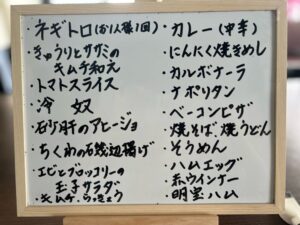 ・ネギトロ(お1人様1回)
・きゅうりとササミの
キムチ和え
・トマトスライス
・冷 奴
・砂肝のアヒージョ
・ちくわの磯辺揚げ
・エビとブロッコリーの
玉子サラダ
・キムチ・らっきょう
・カレー(中辛)
・にんにく焼きめし
・カルボナーラ
・ナポリタン
・ベーコンピザ
・焼そば、焼うどん
・そうめん
・ハムエッグ
・赤ウインナー
・明宝ハム